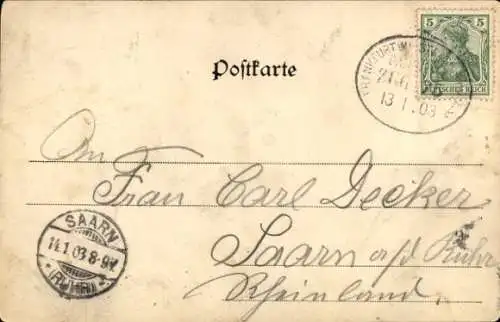 5
DEUTSCHES REICH
FRANKFURT
13.1.03
Postkarte
An
Frau Carl Decker
SAARN
14.1.03.8-9V.
(RUHR)
Saarn a/d Ruhr
Rheinland.